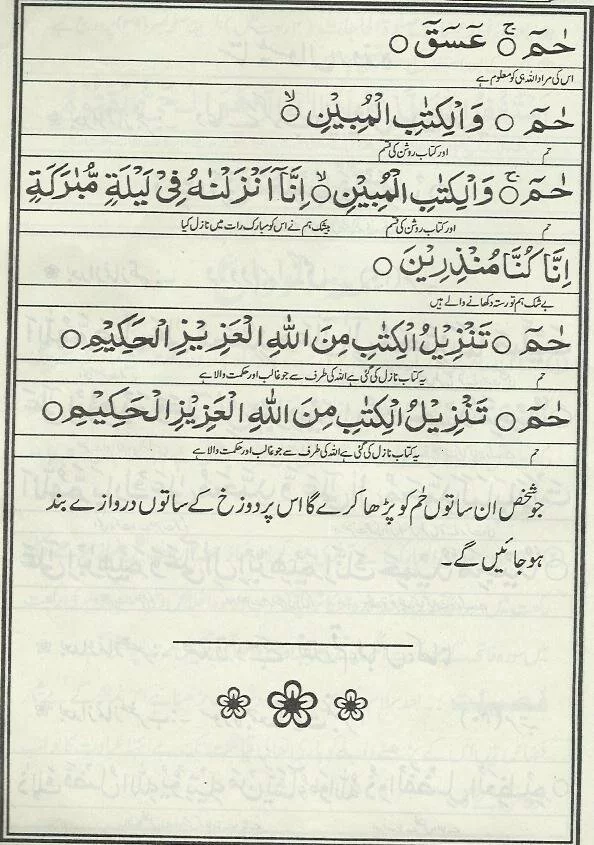 حٰمٓ ۚ○ عٓسٓقٓ ○
اس کی مراد اللہ ہی کو معلوم ہے
حٰمٓ ○ وَالْكِتٰبِ الْمُبِيْنِ ○ۙ
حم اور کتاب روشن کی قسم
حٰمٓ ۚ○ وَالْكِتٰبِ الْمُبِيْنِ ○ۙ اِنَّآ اَنْزَلْنٰهُ فِيْ لَيْلَةٍ مُّبٰرَكَةٍ
حم اور کتاب روشن کی قسم بیشک ہم نے اس کو مبارک رات میں نازل کیا
اِنَّا كُنَّا مُنْذِرِيْنَ ○
بے شک ہم تو رستہ دکھانے والے ہیں
حٰمٓ ○ تَنْزِيْلُ الْكِتٰبِ مِنَ اللّٰهِ الْعَزِيْزِ الْحَكِيْمِ ○
حم یہ کتاب نازل کی گئی ہے اللہ کی طرف سے جو غالب اور حکمت والا ہے
حٰمٓ ○ تَنْزِيْلُ الْكِتٰبِ مِنَ اللّٰهِ الْعَزِيْزِ الْحَكِيْمِ ○
حم یہ کتاب نازل کی گئی ہے اللہ کی طرف سے جو غالب اور حکمت والا ہے
جو شخص ان ساتوں حٰم کو پڑھا کرے گا اس پر دوزخ کے ساتوں دروازے بند
ہو جائیں گے۔